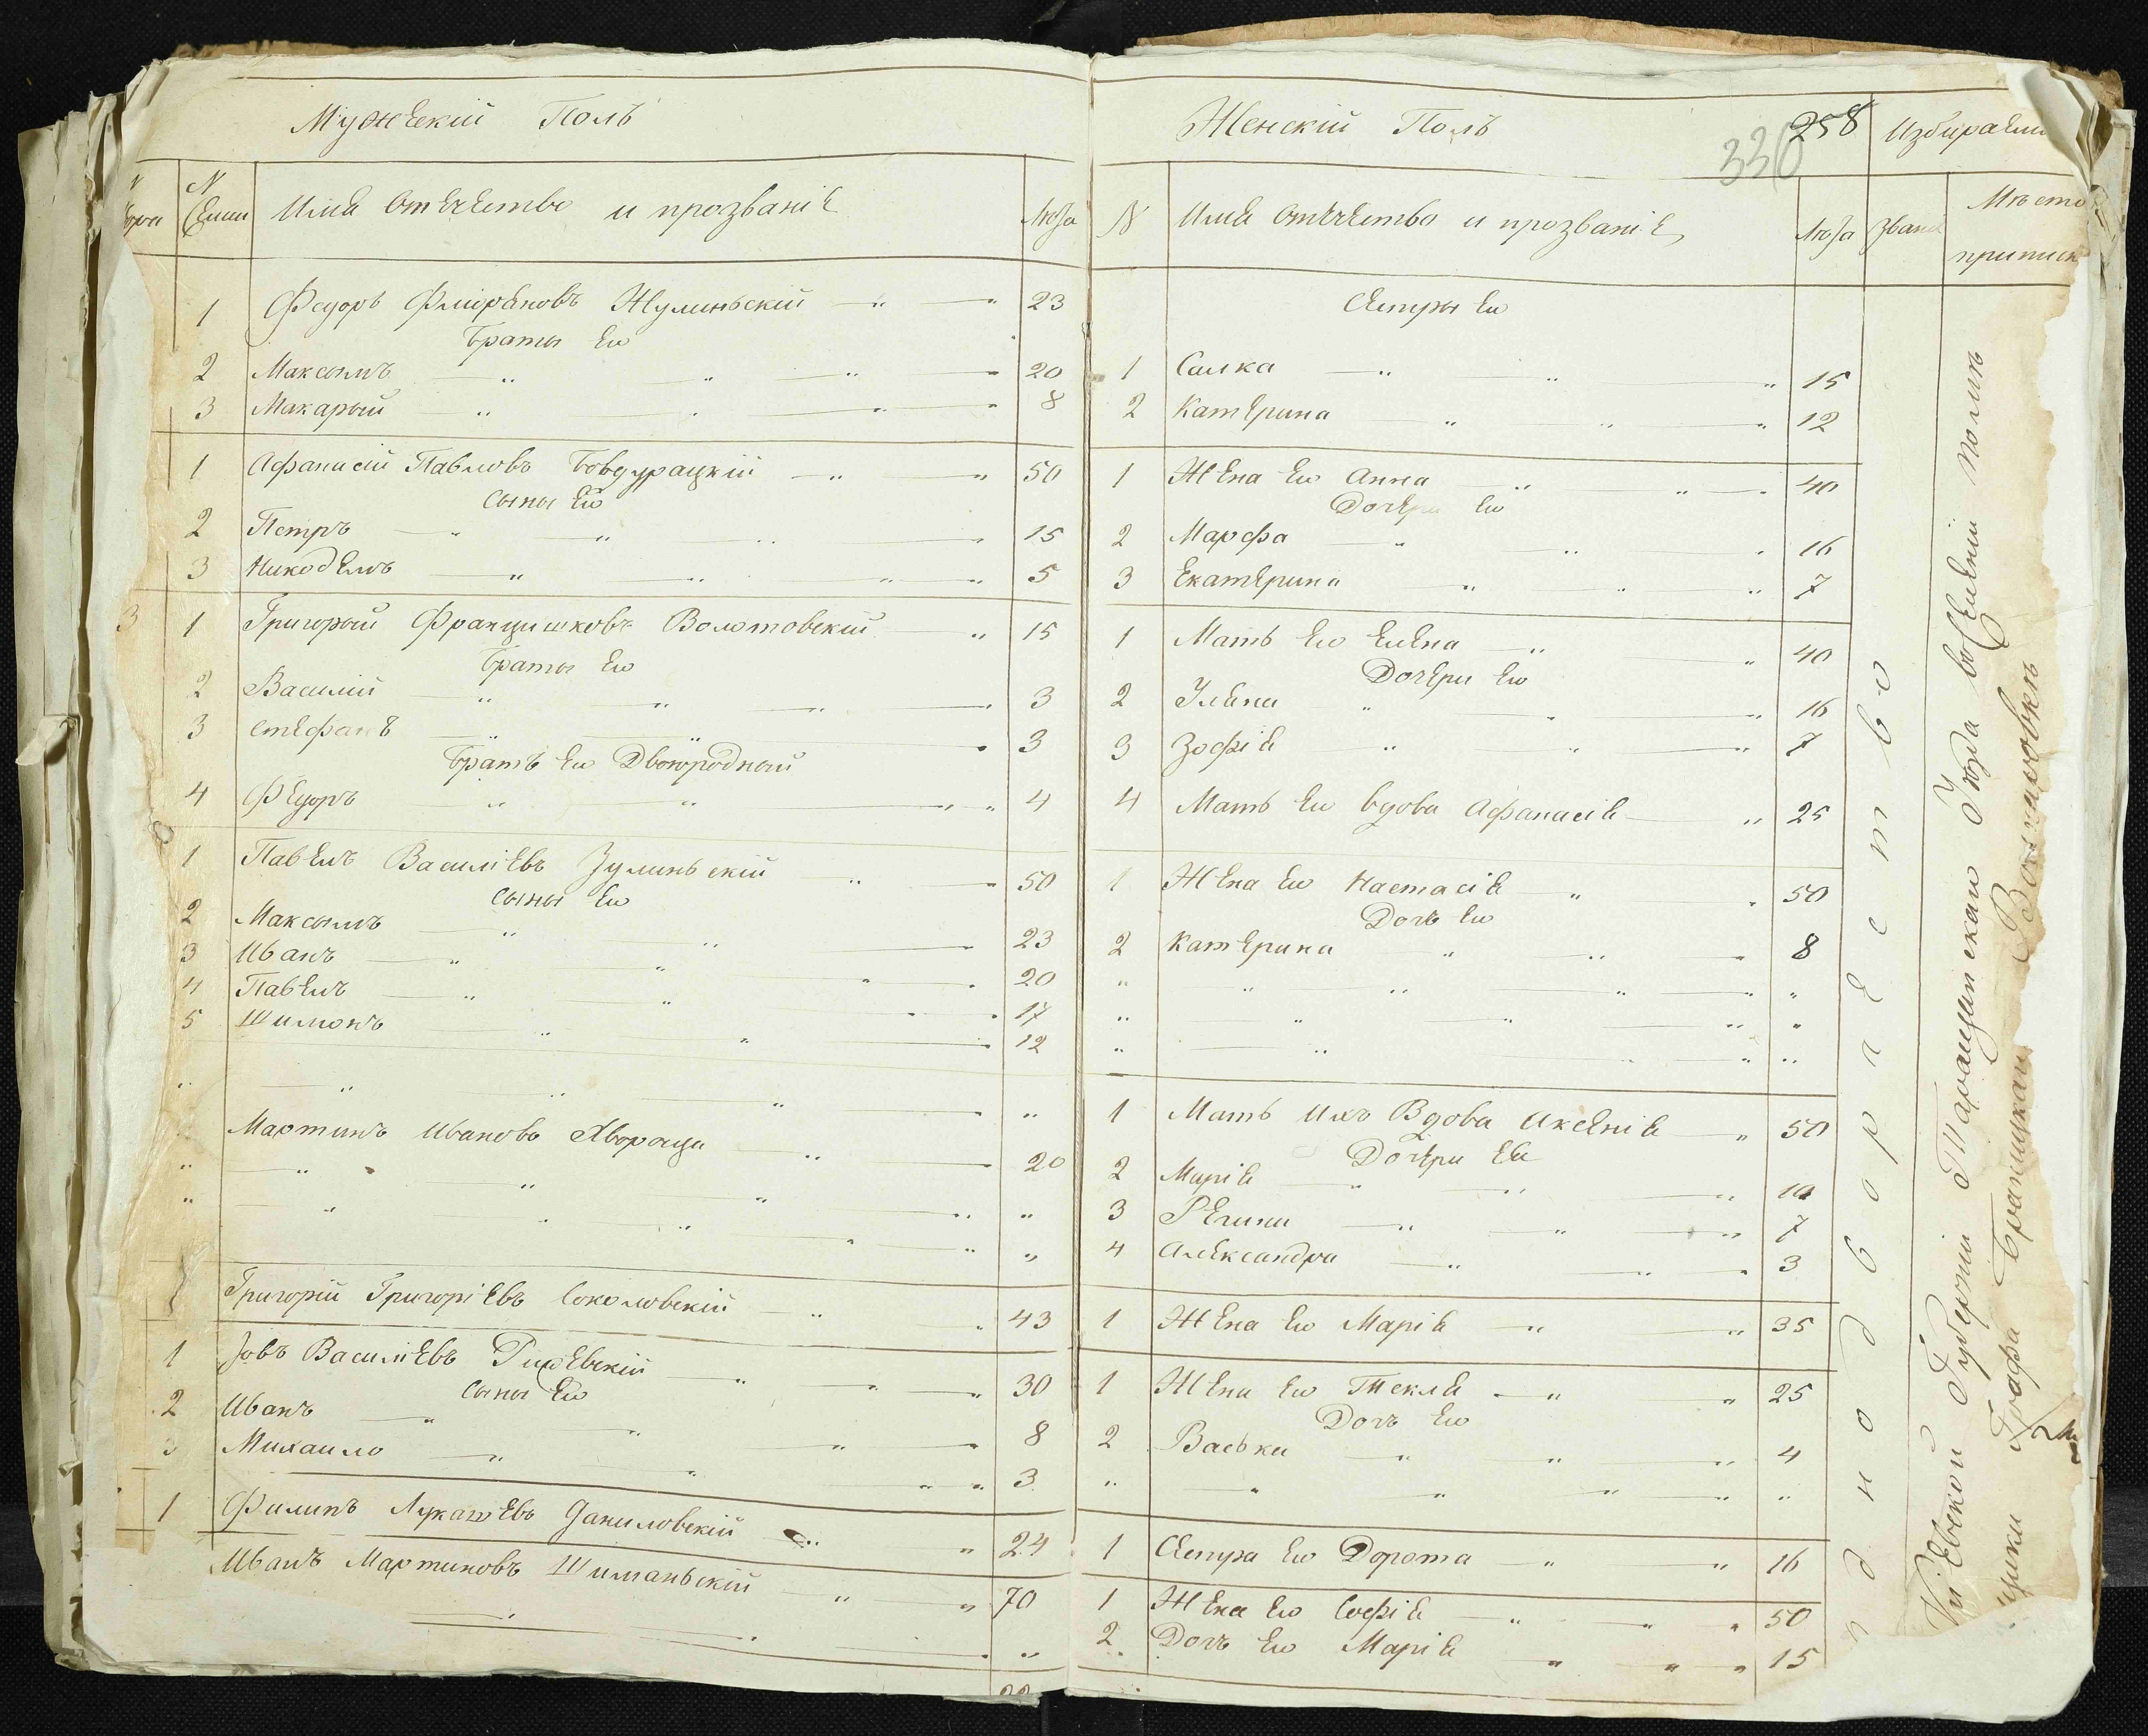 Мужескій Полъ
N Семи Имя Отечество и прозваніе Лѣта
1 Федоръ Флоріановъ Жулинскій 23
Браты Ево
2 Максымъ 20
3 Макарый 8
1 Афанасій Павловъ 50
Сыны Ево
2 Петръ 15
3 Никодемъ 5
3 1 Григорый Францишковъ Волотовскій 15
Браты Ево
2 Василій 3
3 Стефанъ 3
Братъ Ево Двоюродный
4 Федоръ 4
1 Павелъ Василіевъ Зулинскій 50
Сыны Ево
2 Максымъ 23
3 Иванъ 20
4 Павелъ 17
5 Шимонъ 12
Мартинъ Ивановъ 20
Григорій Григоріевъ Соколовскій 43
1 Іовъ Василіевъ 30
Сыны Ево
2 Иванъ 8
3 Михаило 3
1 Филипъ Лукашевъ Даниловскій 24
Иванъ Мартиновъ Шиманьскій 70
Женскій Полъ 258
330
N Имя Отечество и прозваніе Лѣта
Сестры Ево
1 Салка 15
2 Катерина 12
1 Жена Ево Анна 40
Дочери Ево
2 Марфа 16
3 Екатерина 7
1 Мать Ево Елена 40
Дочери Ево
2 Уляна 16
3 Зофія 7
4 Мать Ево вдова Афанасія 25
1 Жена Ево Настасія 50
Дочь Ево
2 Катерина 8
1 Мать Ихъ Вдова Аксенія 50
Дочери Ея
2 Марія 10
3 Регина 7
4 Александра 3
1 Жена Ево Марія 35
1 Жена Ево Текля 25
Дочь Ево
2 Васька 4
1 Сестра Ево Дорота 16
1 Жена Ево Софія 50
2 Дочь Ево Марія 15
Избираемы
Зван
Мѣсто
приписк
Кіевской Губерніи Таращанскаго Уезда въ Селеніи
Графа Браницкаго